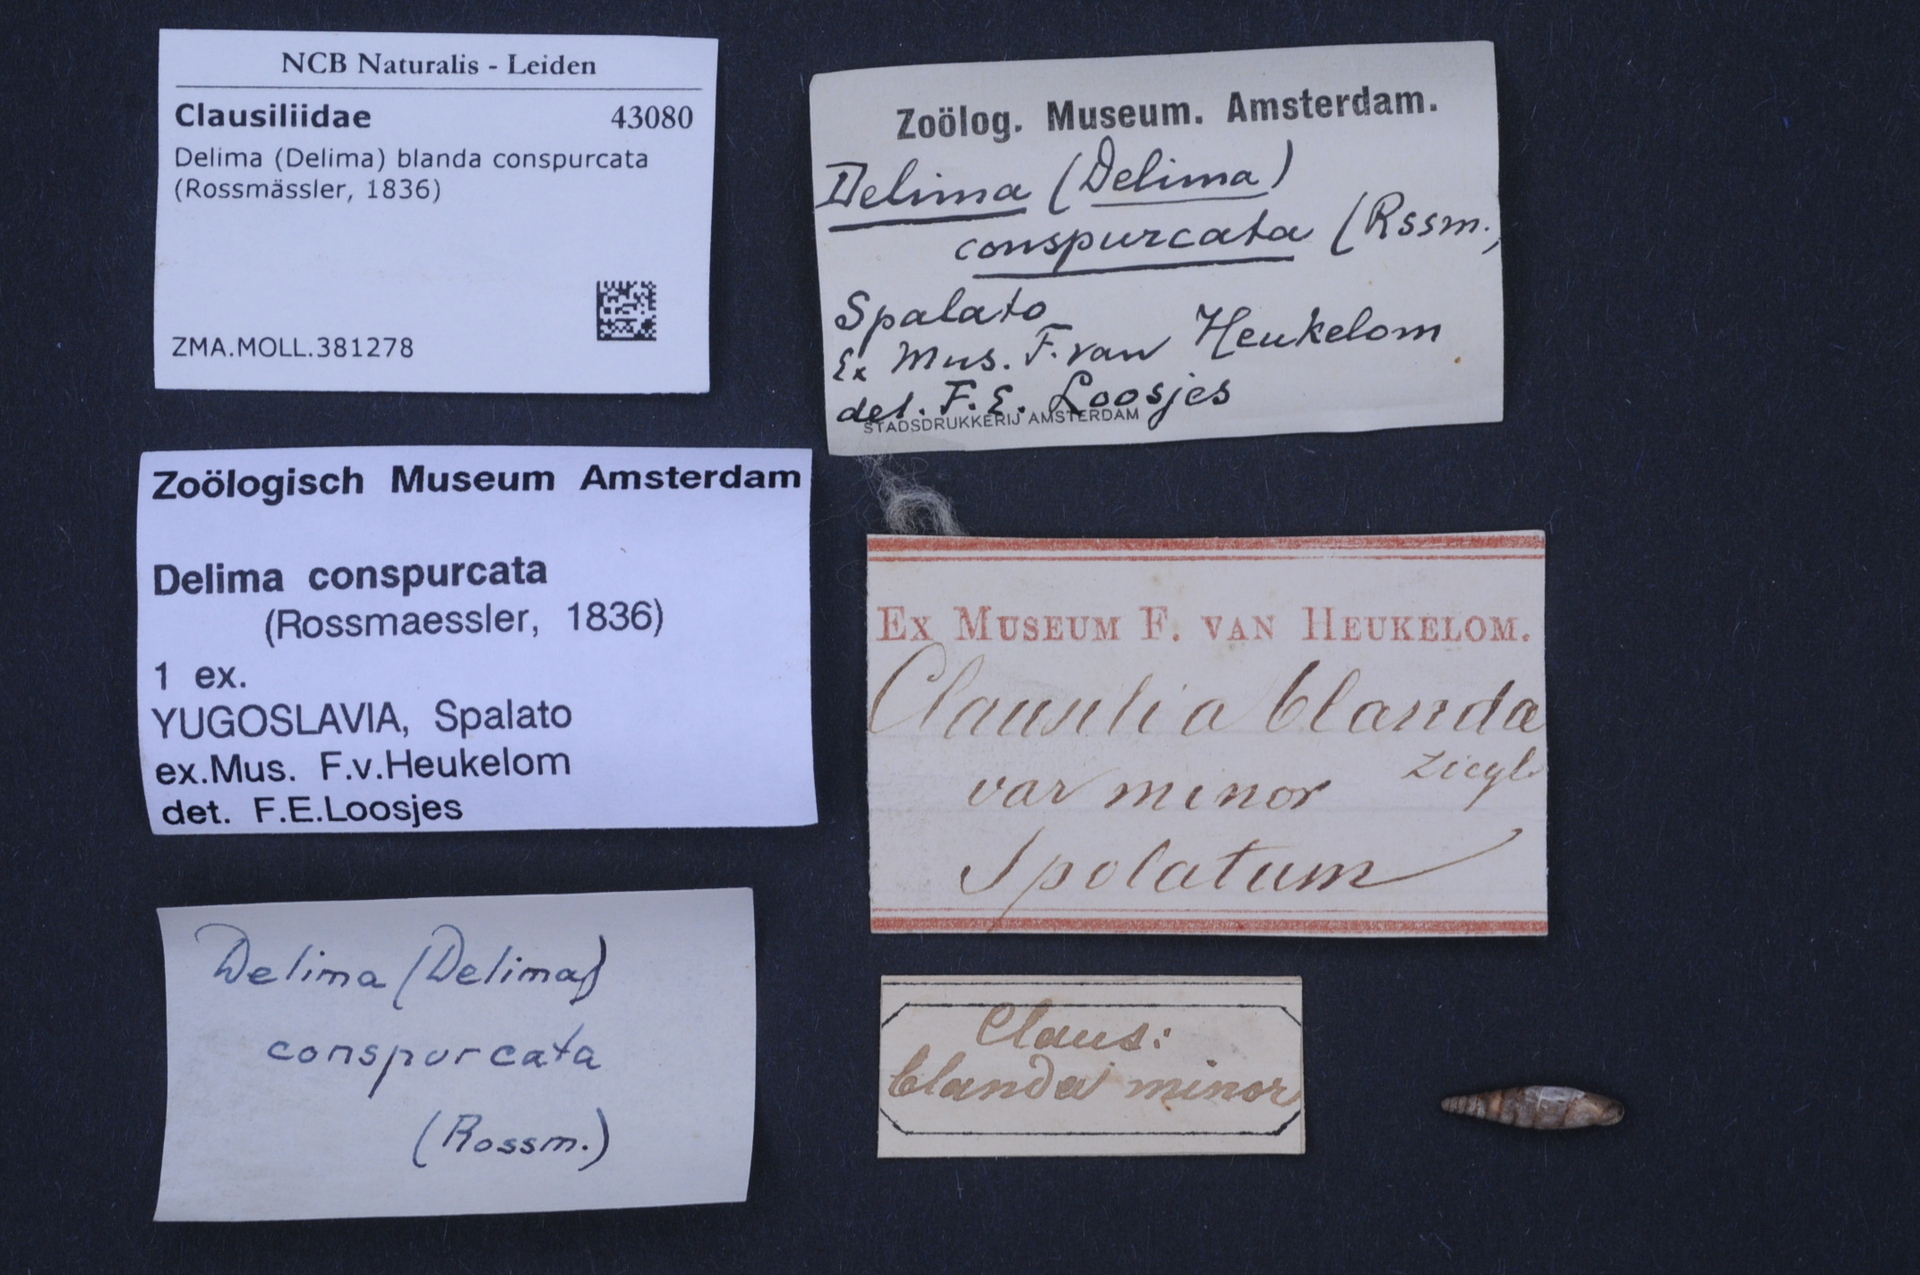 NCB Naturalis - Leiden
Clausiliidae 43080
Delima (Delima) blanda conspurcata
(Rossmässler, 1836)
ZMA.MOLL.381278
Zoölog. Museum. Amsterdam.
Delima (Delima)
conspurcata (Rssm.)
Spalato
Ex Mus. F. van Heukelom
det. F. E. Loosjes
STADSDRUKKERIJ AMSTERDAM
Zoölogisch Museum Amsterdam
Delima conspurcata
(Rossmaessler, 1836)
1 ex.
YUGOSLAVIA, Spalato
ex.Mus. F.v.Heukelom
det. F.E.Loosjes
EX MUSEUM F. VAN HEUKELOM.
Clausilia blanda
Ziegl.
var minor
Spolatum
Delima (Delima)
conspurcata
(Rossm.)
Claus:
blanda minor